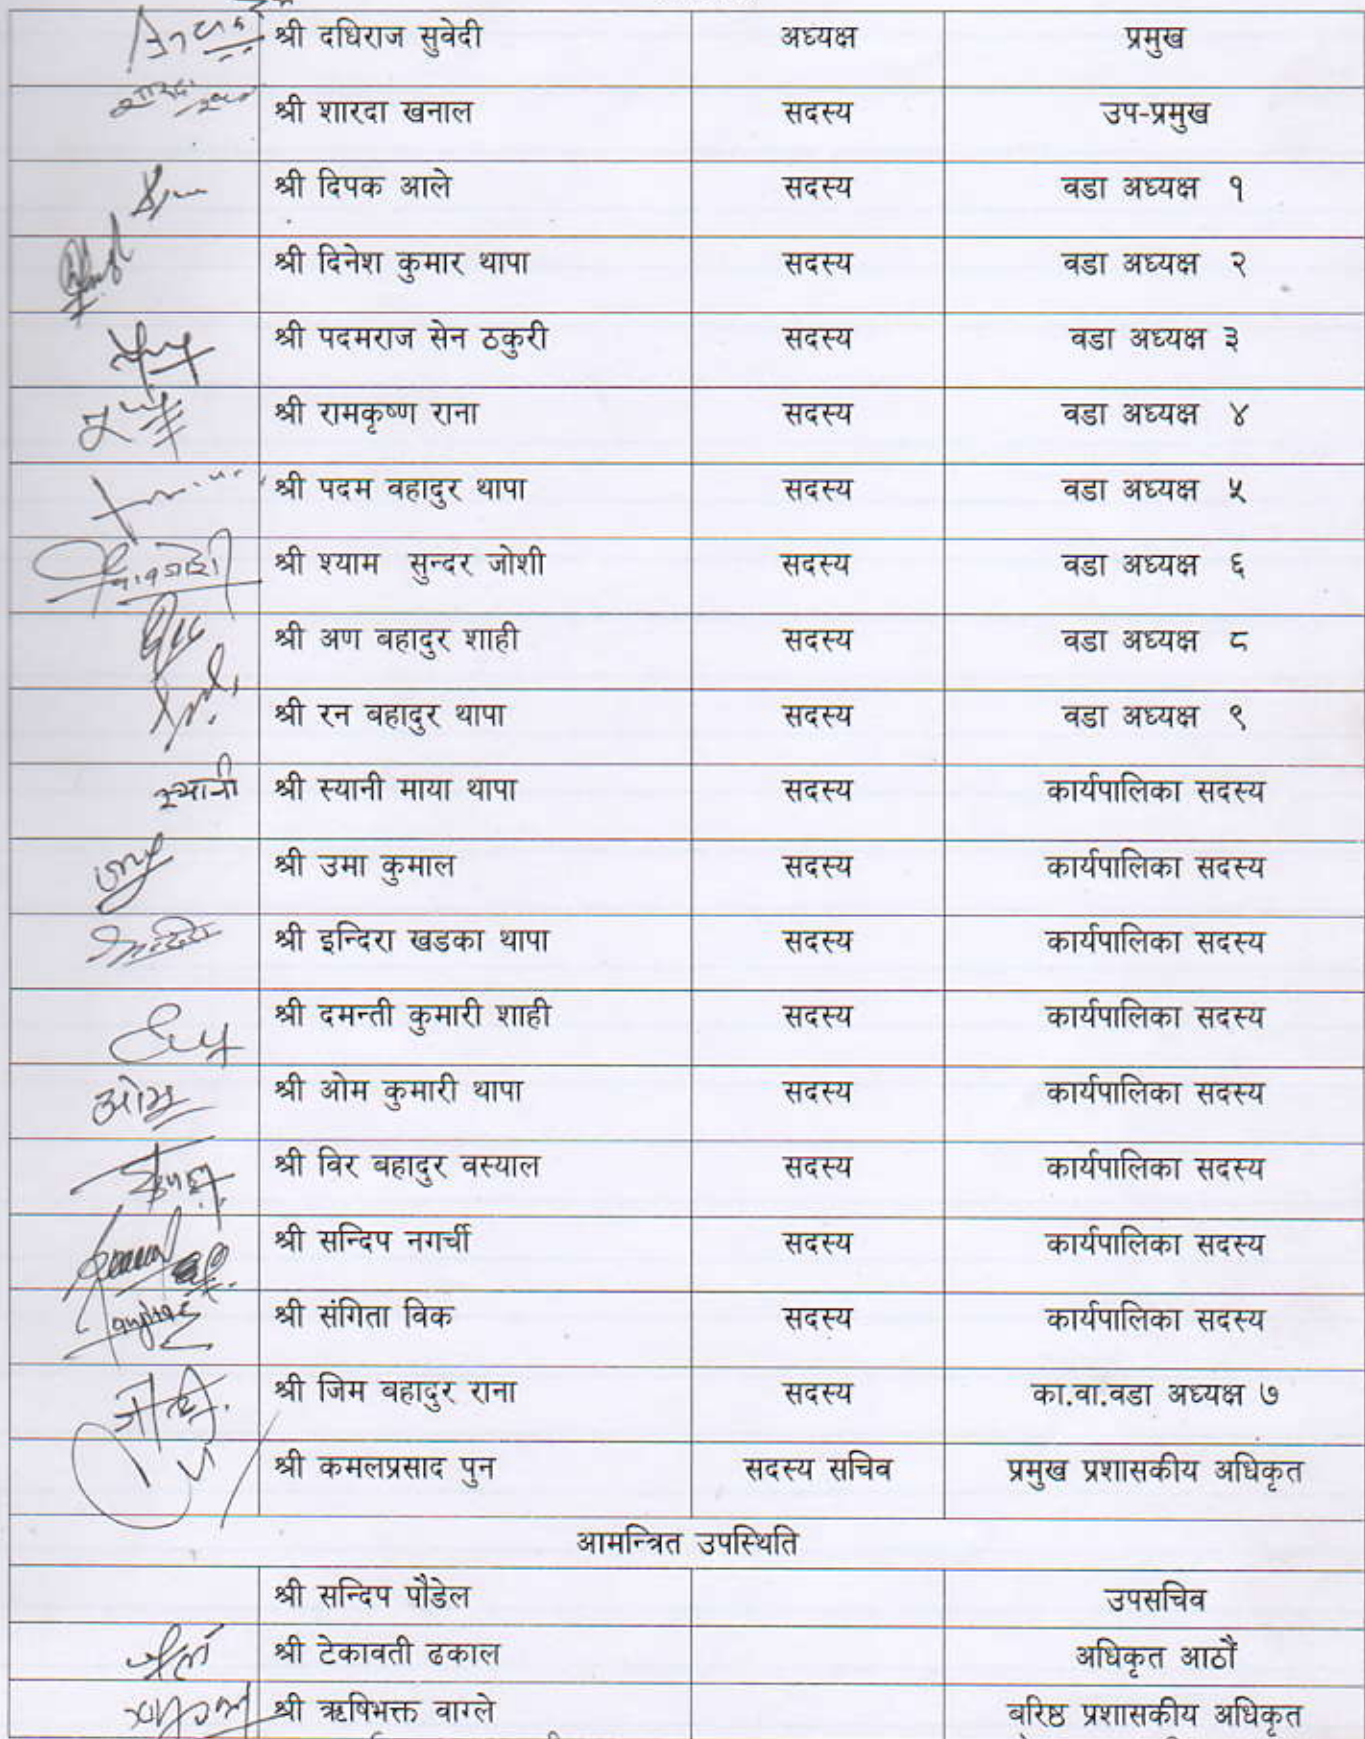 श्री दधिराज सुवेदी अध्यक्ष प्रमुख
श्री शारदा खनाल सदस्य उप-प्रमुख
श्री दिपक आले सदस्य वडा अध्यक्ष १
श्री दिनेश कुमार थापा सदस्य वडा अध्यक्ष २
श्री पदमराज सेन ठकुरी सदस्य वडा अध्यक्ष ३
श्री रामकृष्ण राना सदस्य वडा अध्यक्ष ४
श्री पदम वहादुर थापा सदस्य वडा अध्यक्ष ५
श्री श्याम सुन्दर जोशी सदस्य वडा अध्यक्ष ६
श्री अण बहादुर शाही सदस्य वडा अध्यक्ष ८
श्री रन बहादुर थापा सदस्य वडा अध्यक्ष ९
स्यानी श्री स्यानी माया थापा सदस्य कार्यपालिका सदस्य
श्री उमा कुमाल सदस्य कार्यपालिका सदस्य
श्री इन्दिरा खडका थापा सदस्य कार्यपालिका सदस्य
श्री दमन्ती कुमारी शाही सदस्य कार्यपालिका सदस्य
ओम श्री ओम कुमारी थापा सदस्य कार्यपालिका सदस्य
श्री विर बहादुर वस्याल सदस्य कार्यपालिका सदस्य
श्री सन्दिप नगर्ची सदस्य कार्यपालिका सदस्य
श्री संगिता विक सदस्य कार्यपालिका सदस्य
श्री जिम बहादुर राना सदस्य का.वा.वडा अध्यक्ष ७
श्री कमलप्रसाद पुन सदस्य सचिव प्रमुख प्रशासकीय अधिकृत
आमन्त्रित उपस्थिति
श्री सन्दिप पौडेल उपसचिव
श्री टेकावती ढकाल अधिकृत आठौं
श्री ऋषिभक्त वाग्ले बरिष्ठ प्रशासकीय अधिकृत